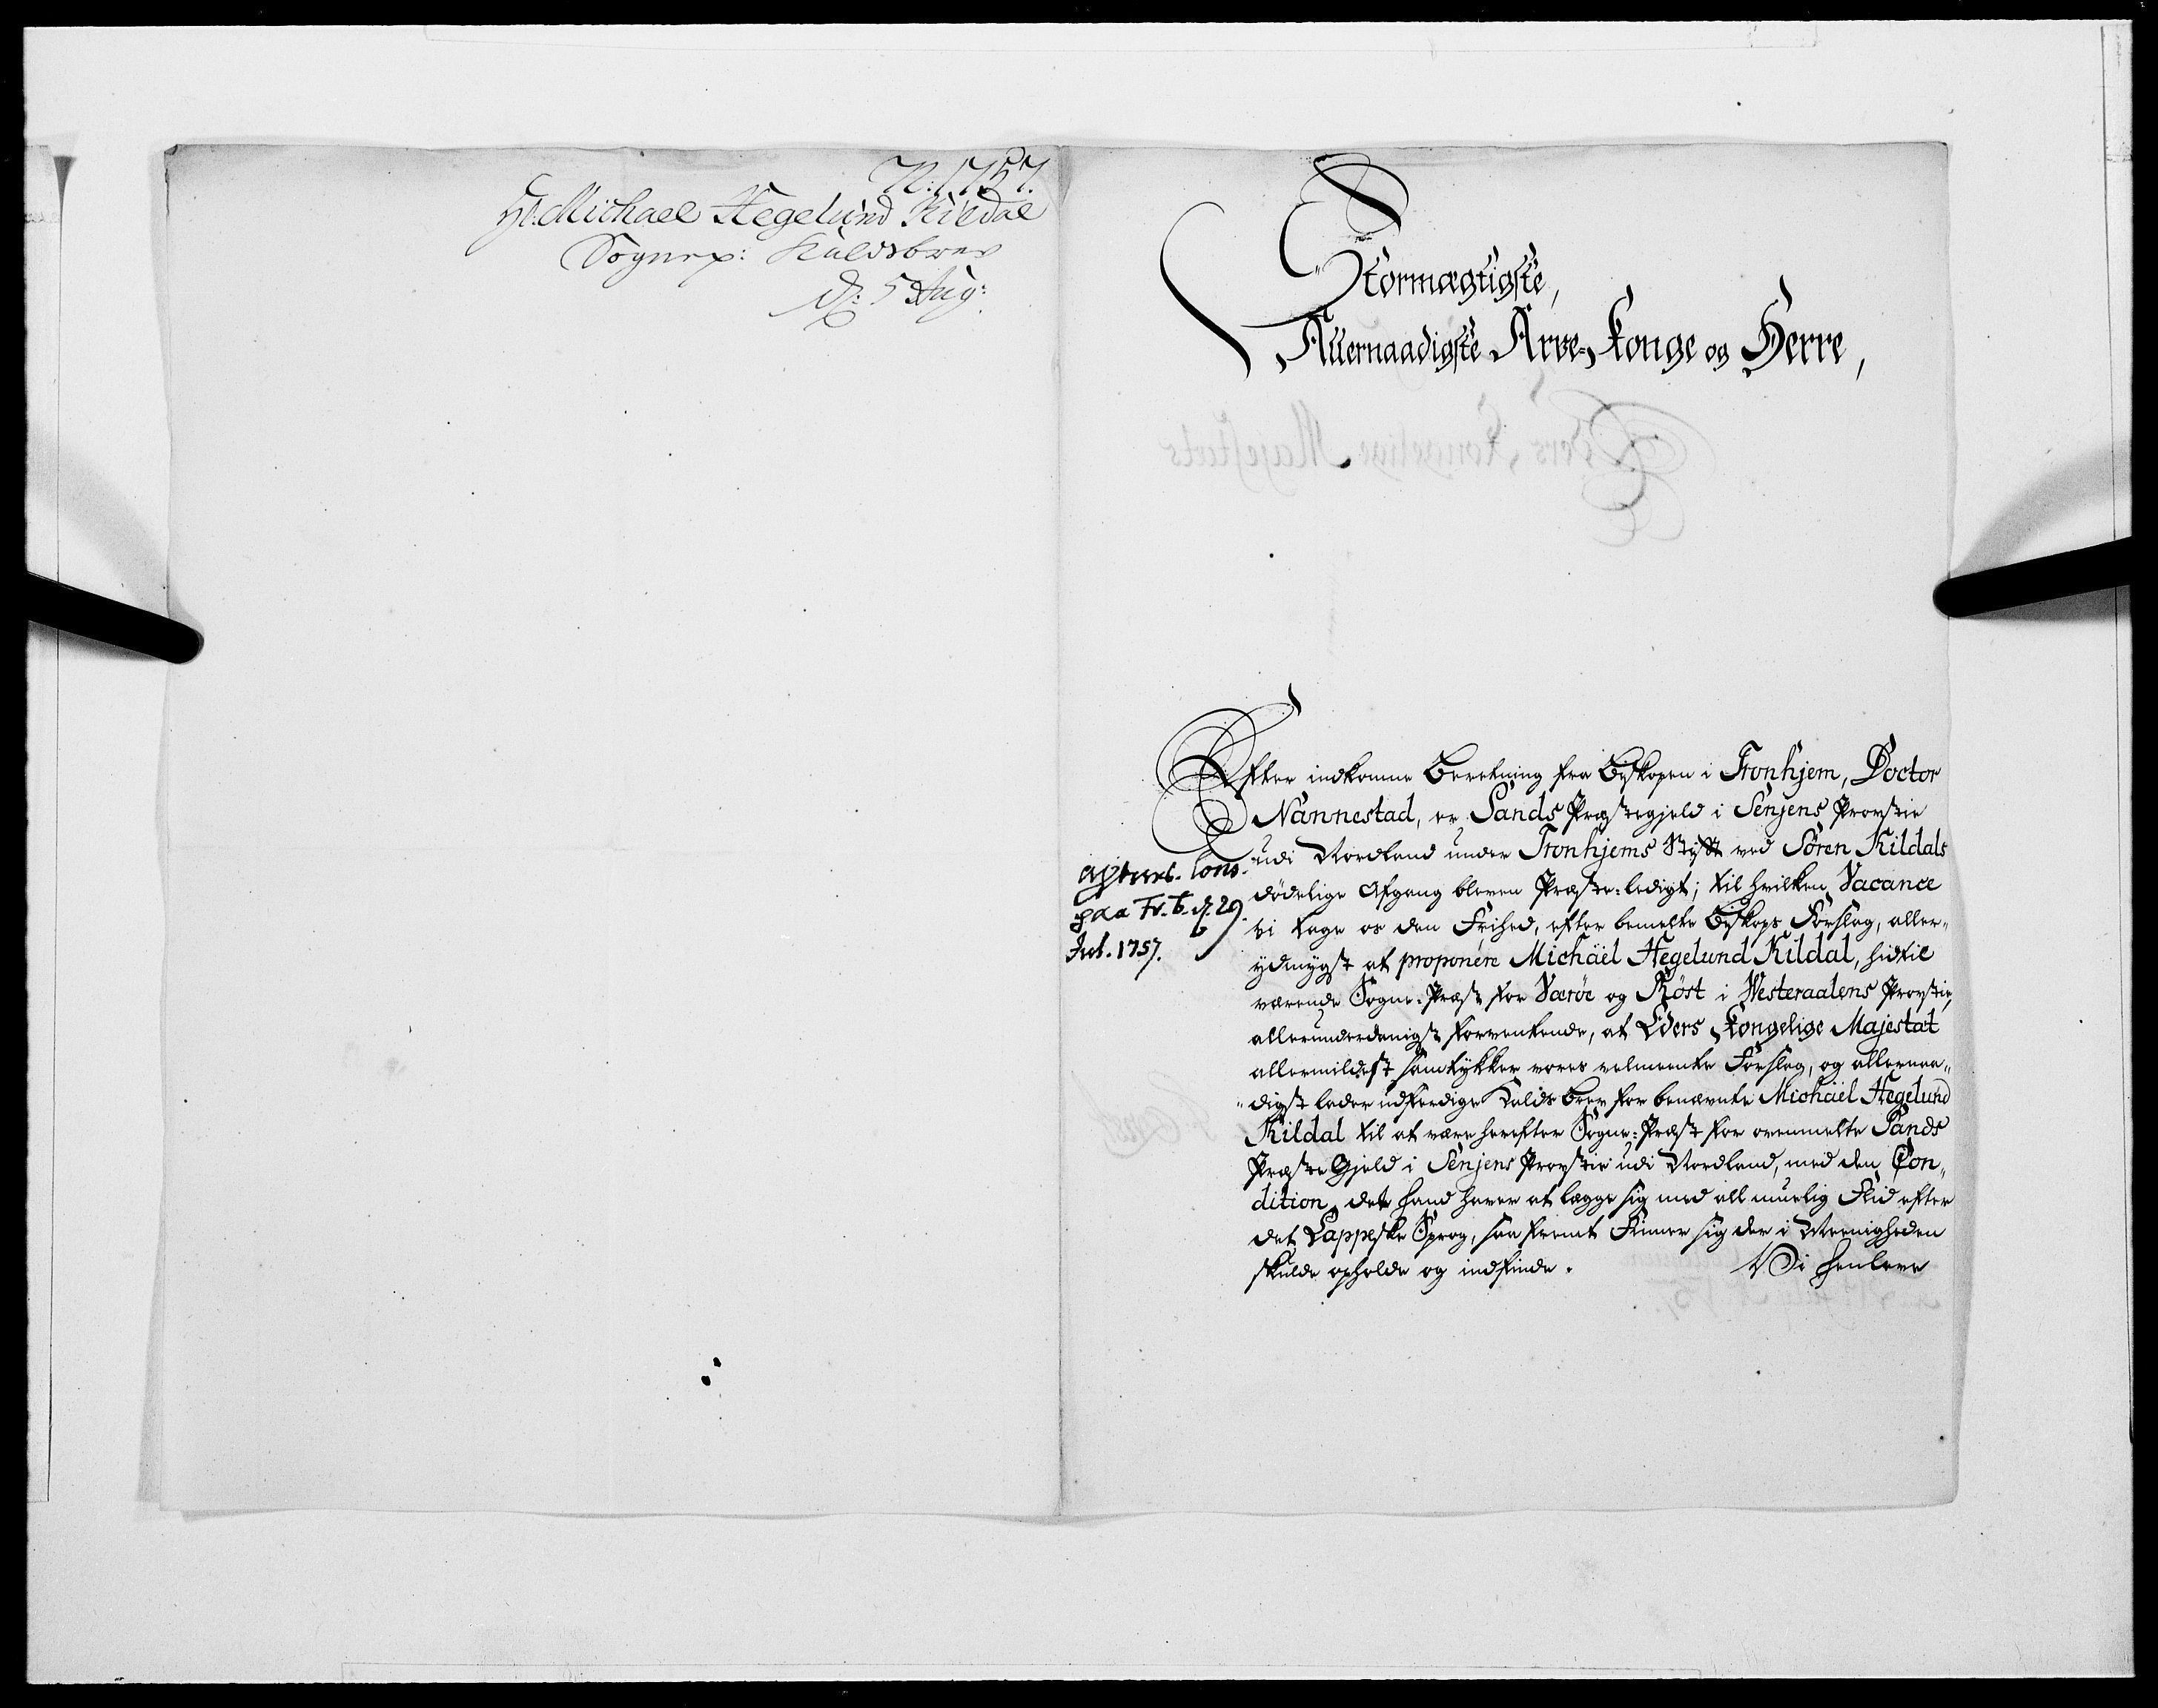 N: 1757.
Hr. Michael Hegelund Kildal
Sognep: Kaldsbrev
d: 5 Aug:
Stormægtigste,
Allernaadigste Arve-Konge og Herre,
Efter indkomne Beretning fra Biskopen i Tronhjem, Doctor
Nannestad, er Sands Præstegjeld i Senjens Provstie
udi Nordland under Tronhjems Stift ved Sören Kildals
dödelige Afgang bleven Præste-ledigt; til hvilken Vacance
vi tage os den Friheed, efter bemelte Biskops Forslag, aller-
ydmygst at proponere Michäel Hegelund Kildal, hidtil
værende Sogne-Præst for Væröe og Röst i Westeraalens Provstie,
allerunderdanigst forventende, at Eders Kongelige Majestät
allermildest samtykker vores velmeente Forslag, og allernaa-
digst lader udferdige Kalds Brev for benævnte Michäel Hegelund
Kildal til at være herefter Sogne-Præst for ovenmelte Sands
Præste Gjeld i Senjens Provstie udi Nordland, med den Con-
dition, det hand haver at lægge sig med all muelig Flid efter
det Lappeske Sprog, saa fremt Finner sig der i Meenigheden
skulde opholde og indfinde.
Vi henleve
approb. Cons.
paa Fr.b. d. 29.
Jul. 1757.